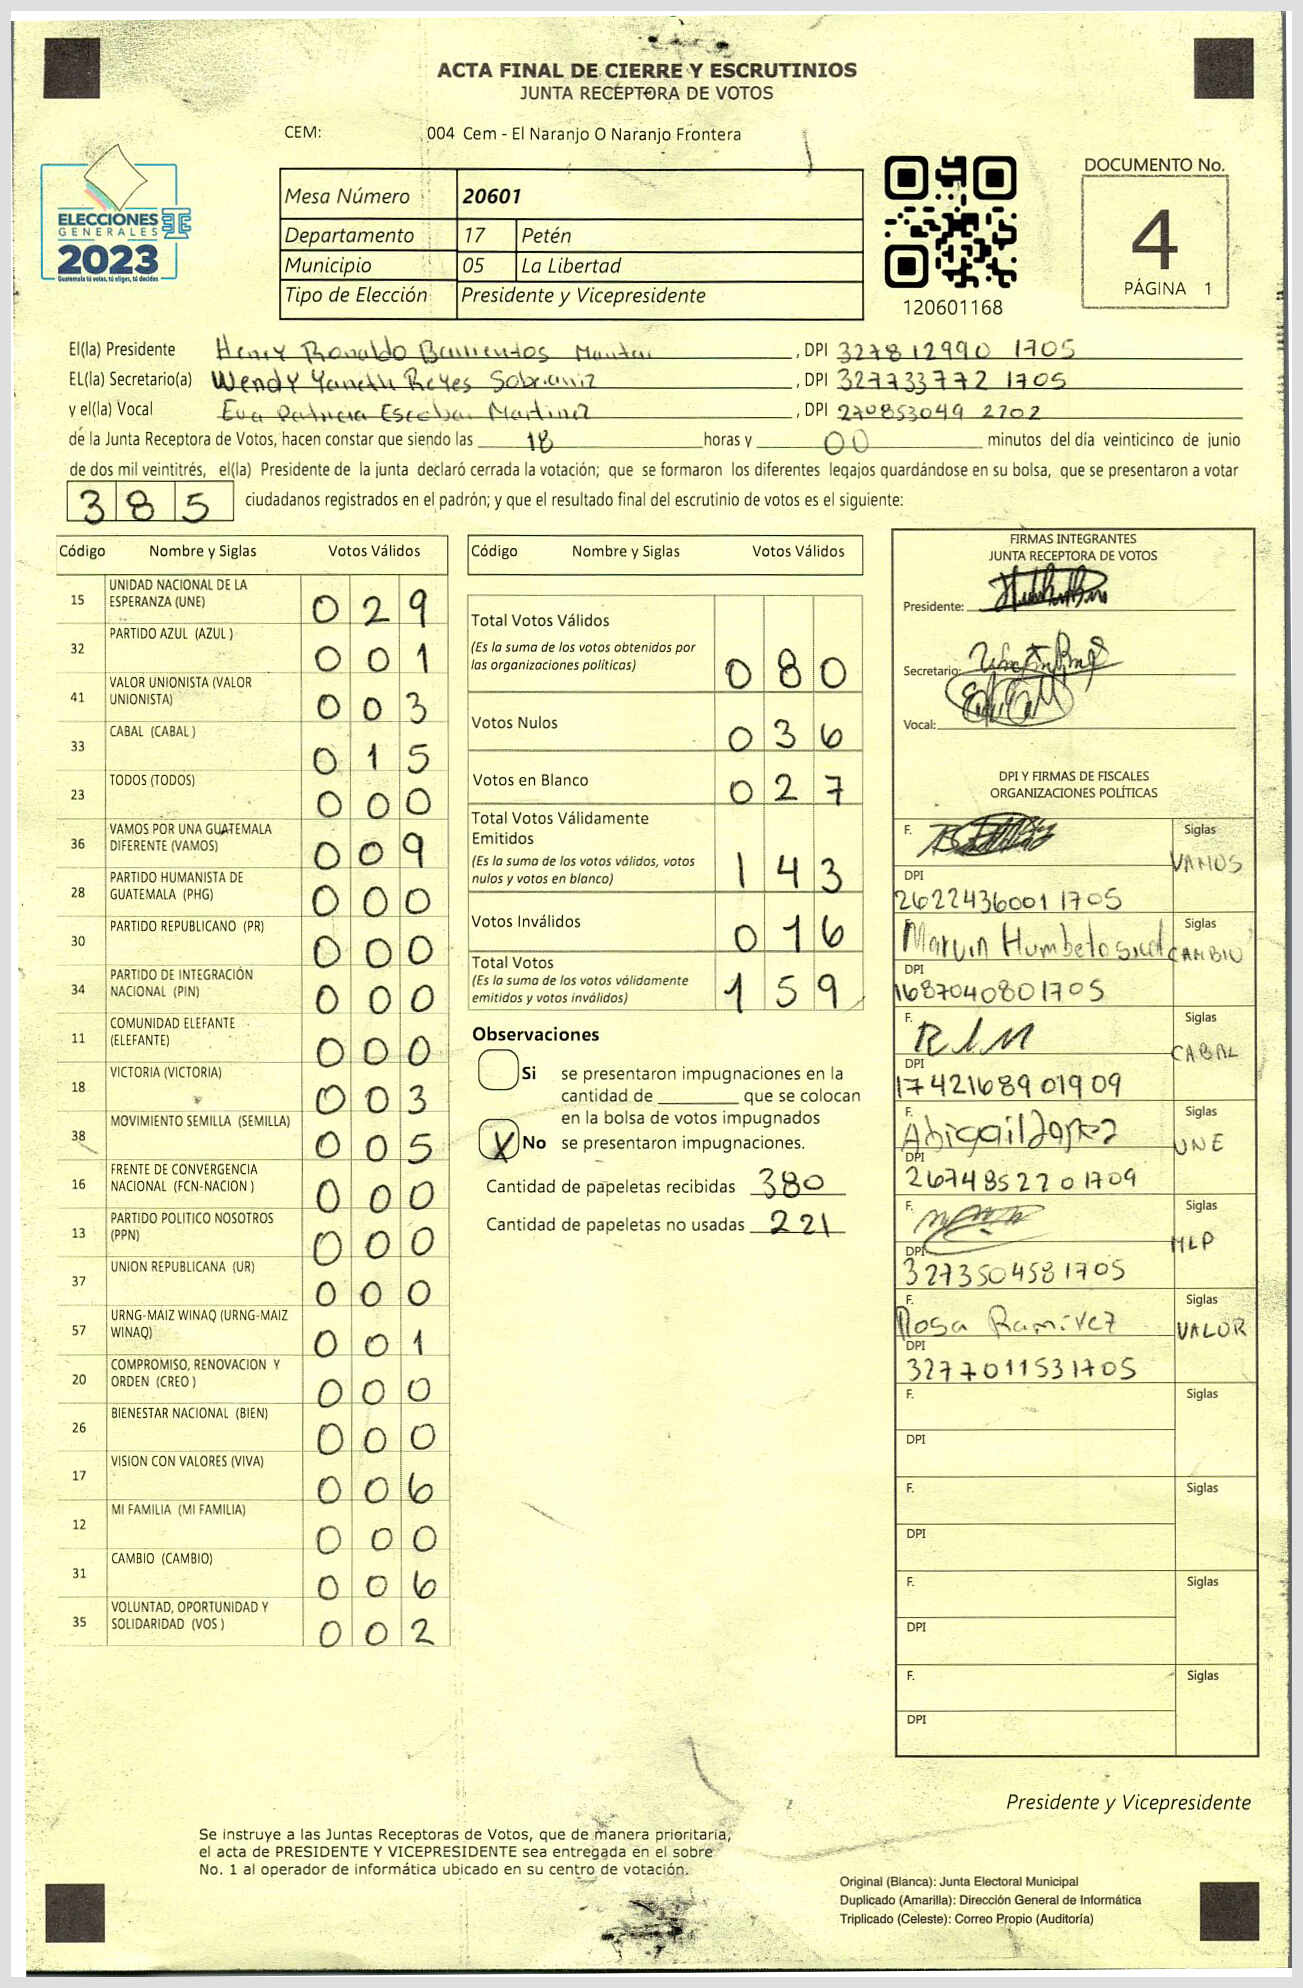 ACTA FINAL DE CIERRE Y ESCRUTINIOS
JUNTA RECEPTORA DE VOTOS
CEM: 004 Cem - El Naranjo O Naranjo Frontera
ELECCIONES
GENERALES
2023
Guatemala tú votas, tú eliges, tú decides
Mesa Número 20601
Departamento 17 Petén
Municipio 05 La Libertad
Tipo de Elección Presidente y Vicepresidente
120601168
DOCUMENTO No.
4
PÁGINA 1
El(la) Presidente Henry Ronaldo Barrientos , DPI 327812990 1705
EL(la) Secretario(a) Wendy Yaneth Reyes , DPI 327733772 1705
y el(la) Vocal Eva Patricia Escobar Martinez , DPI 270853049 2202
de la Junta Receptora de Votos, hacen constar que siendo las 18 horas y 00 minutos del día veinticinco de junio
de dos mil veintitrés, el(la) Presidente de la junta declaró cerrada la votación; que se formaron los diferentes legajos guardándose en su bolsa, que se presentaron a votar
385 ciudadanos registrados en el padrón; y que el resultado final del escrutinio de votos es el siguiente:
Código Nombre y Siglas Votos Válidos
15 UNIDAD NACIONAL DE LA
ESPERANZA (UNE) 029
32 PARTIDO AZUL (AZUL ) 001
41 VALOR UNIONISTA (VALOR
UNIONISTA) 003
33 CABAL (CABAL ) 015
23 TODOS (TODOS) 000
36 VAMOS POR UNA GUATEMALA
DIFERENTE (VAMOS) 009
28 PARTIDO HUMANISTA DE
GUATEMALA (PHG) 000
30 PARTIDO REPUBLICANO (PR) 000
34 PARTIDO DE INTEGRACIÓN
NACIONAL (PIN) 000
11 COMUNIDAD ELEFANTE
(ELEFANTE) 000
18 VICTORIA (VICTORIA) 003
38 MOVIMIENTO SEMILLA (SEMILLA) 005
16 FRENTE DE CONVERGENCIA
NACIONAL (FCN-NACION ) 000
13 PARTIDO POLITICO NOSOTROS
(PPN) 000
37 UNION REPUBLICANA (UR) 000
57 URNG-MAIZ WINAQ (URNG-MAIZ
WINAQ) 001
20 COMPROMISO, RENOVACION Y
ORDEN (CREO ) 000
26 BIENESTAR NACIONAL (BIEN) 000
17 VISION CON VALORES (VIVA) 006
12 MI FAMILIA (MI FAMILIA) 000
31 CAMBIO (CAMBIO) 006
35 VOLUNTAD, OPORTUNIDAD Y
SOLIDARIDAD (VOS ) 002
Código Nombre y Siglas Votos Válidos
Total Votos Válidos
(Es la suma de los votos obtenidos por
las organizaciones políticas) 080
Votos Nulos 036
Votos en Blanco 027
Total Votos Válidamente
Emitidos
(Es la suma de los votos válidos, votos
nulos y votos en blanco) 143
Votos Inválidos 016
Total Votos
(Es la suma de los votos válidamente
emitidos y votos inválidos) 159
Observaciones
Si se presentaron impugnaciones en la
cantidad de ________ que se colocan
en la bolsa de votos impugnados
X No se presentaron impugnaciones.
Cantidad de papeletas recibidas 380
Cantidad de papeletas no usadas 221
FIRMAS INTEGRANTES
JUNTA RECEPTORA DE VOTOS
Presidente:
Secretario:
Vocal:
DPI Y FIRMAS DE FISCALES
ORGANIZACIONES POLÍTICAS
F. Siglas
VAMOS
DPI
2622436001 1705
F. Marvin Humberto Siglas
CAMBIO
DPI
1687040801705
F. Siglas
CABAL
DPI
1742168901909
F. Abigail López Siglas
UNE
DPI
2674852201709
F. Siglas
MLP
DPI
3273504581705
F. Rosa Ramírez Siglas
VALOR
DPI
3277011531705
F. Siglas
DPI
F. Siglas
DPI
F. Siglas
DPI
F. Siglas
DPI
Presidente y Vicepresidente
Se instruye a las Juntas Receptoras de Votos, que de manera prioritaria,
el acta de PRESIDENTE Y VICEPRESIDENTE sea entregada en el sobre
No. 1 al operador de informática ubicado en su centro de votación.
Original (Blanca): Junta Electoral Municipal
Duplicado (Amarilla): Dirección General de Informática
Triplicado (Celeste): Correo Propio (Auditoría)